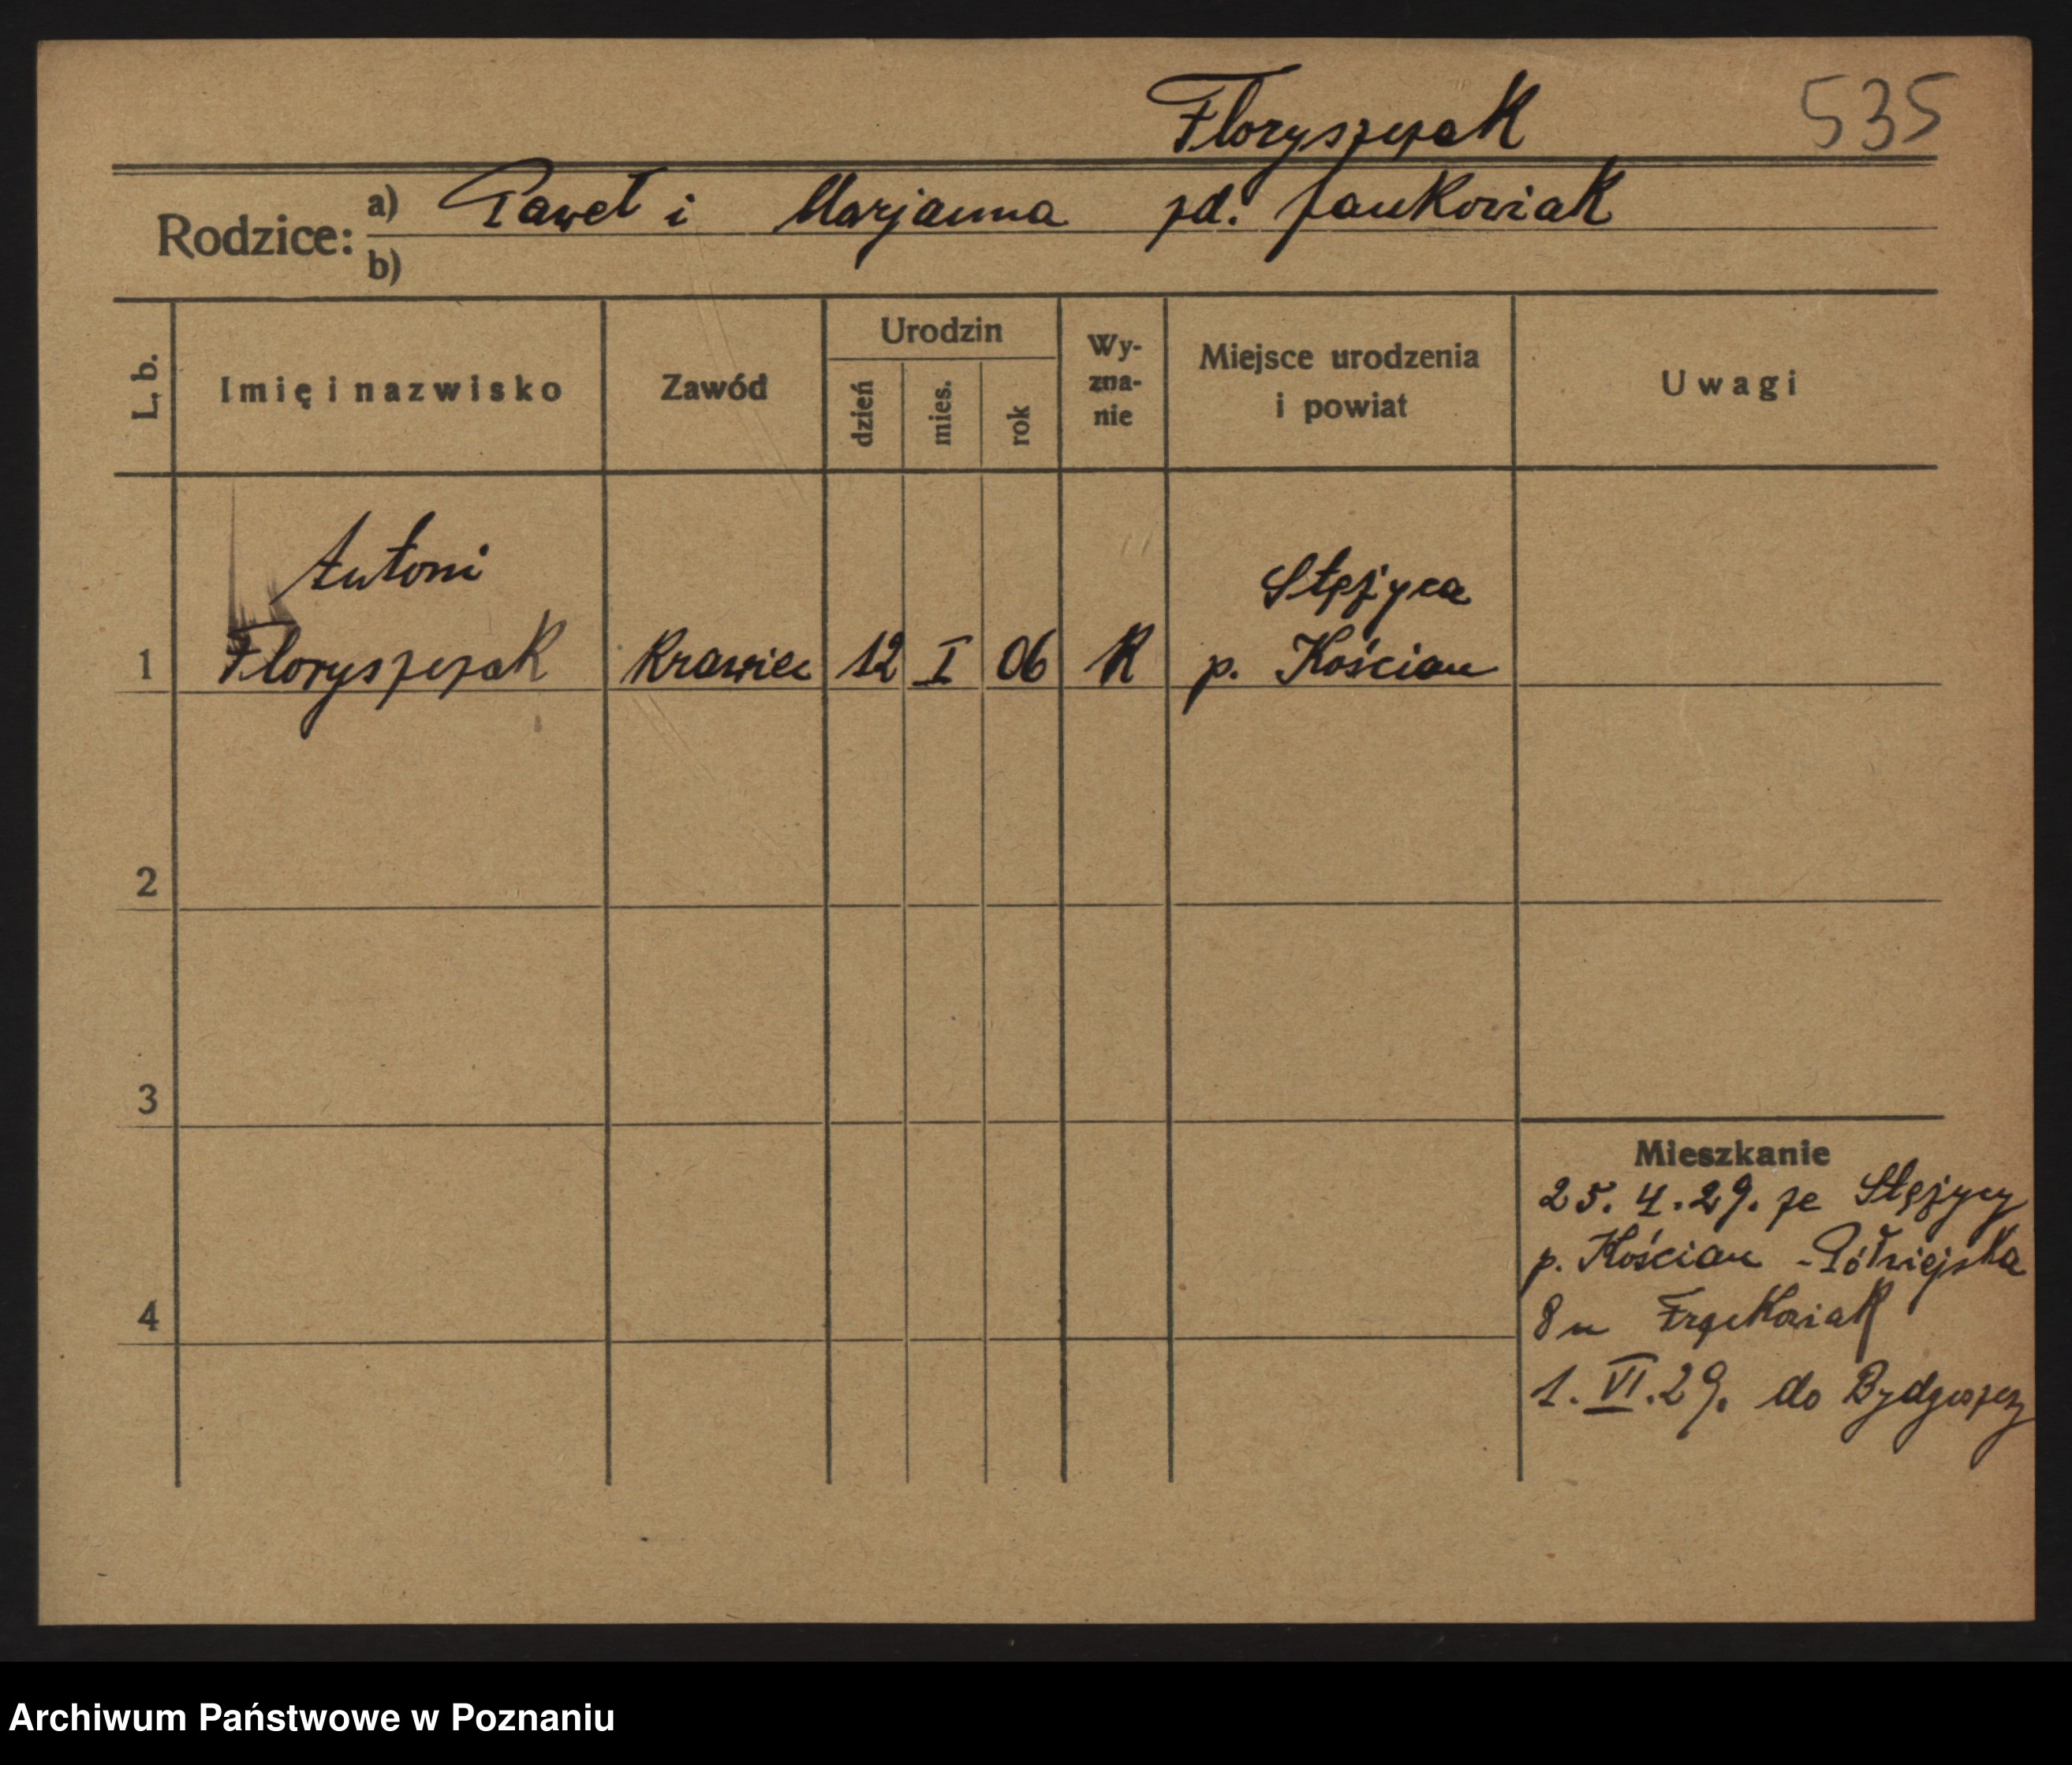 Floryszczak 535
Rodzice: a) Paweł i Marjanna zd. Jankowiak
b)
L. b. Imię i nazwisko Zawód Urodzin dzień mies. rok Wy-zna-nie Miejsce urodzenia i powiat Uwagi
Antoni Stężyca
1 Floryszczak Krawiec 12 I 06 K p. Kościan
2
3
Mieszkanie
25. 4. 29. ze Stężycy
p. Kościan - Półwiejska
4
8 u Frąckowiak
1. VI. 29. do Bydgoszczy
Archiwum Państwowe w Poznaniu